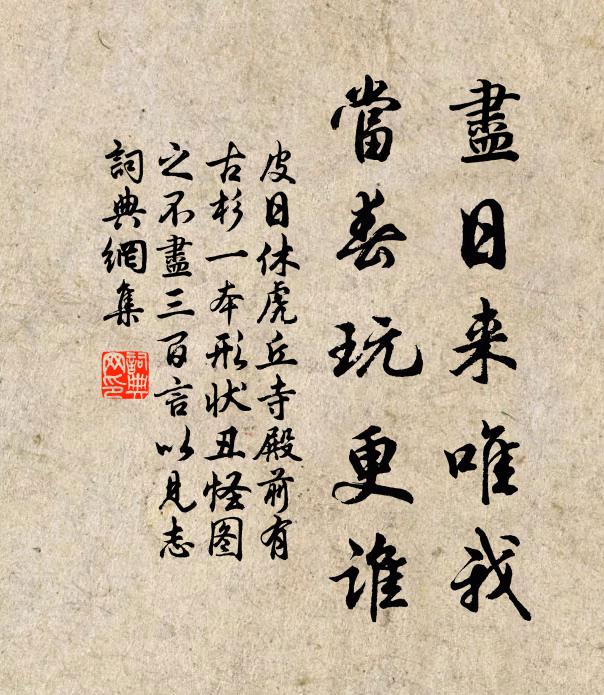 盡日来唯我
當春玩更誰
皮日休虎丘寺殿前有
古杉一本形状丑怪图
之不盡三百言以見志
詞典網集
詞典
网印